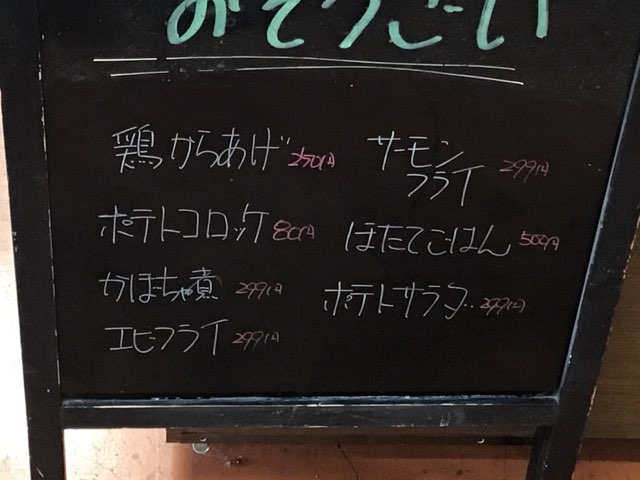 おそうざい
鶏からあげ 250円
サーモンフライ 299円
ポテトコロッケ 80円
ほたてごはん 500円
かぼちゃ煮 299円
ポテトサラダ 299円
エビフライ 299円